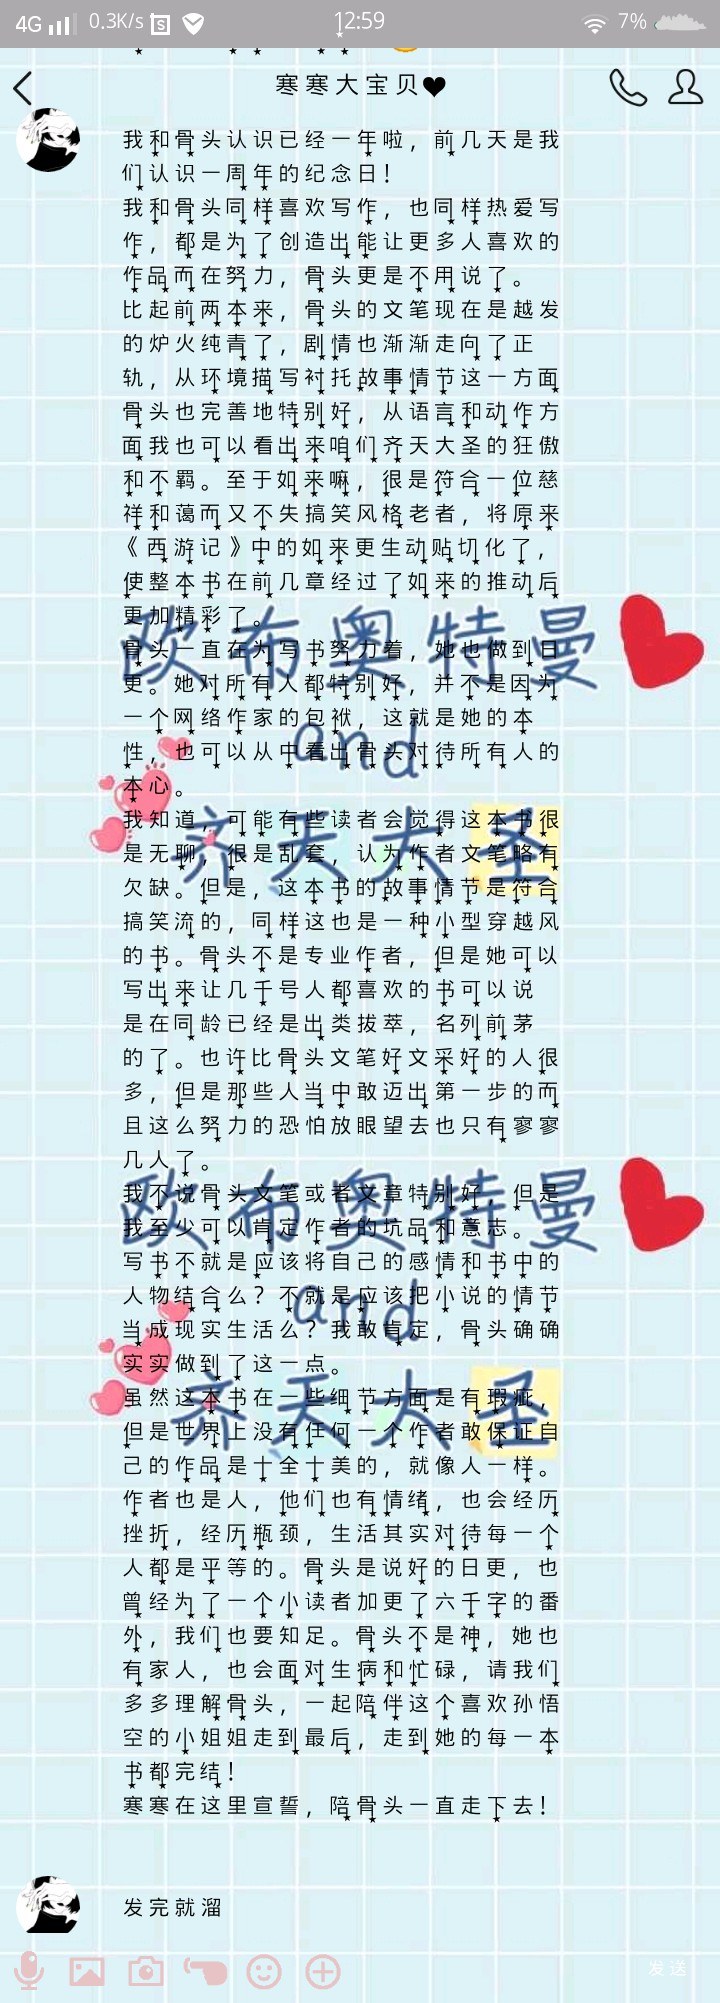 4G 0.3K/s 12:59 7%
寒寒大宝贝♥
我和骨头认识已经一年啦，前几天是我
们认识一周年的纪念日！
我和骨头同样喜欢写作，也同样热爱写
作，都是为了创造出能让更多人喜欢的
作品而在努力，骨头更是不用说了。
比起前两本来，骨头的文笔现在是越发
的炉火纯青了，剧情也渐渐走向了正
轨，从环境描写衬托故事情节这一方面
骨头也完善地特别好，从语言和动作方
面我也可以看出来咱们齐天大圣的狂傲
和不羁。至于如来嘛，很是符合一位慈
祥和蔼而又不失搞笑风格老者，将原来
《西游记》中的如来更生动贴切化了，
使整本书在前几章经过了如来的推动后
更加精彩了。
骨头一直在为写书努力着，她也做到日
更。她对所有人都特别好，并不是因为
一个网络作家的包袱，这就是她的本
性，也可以从中看出骨头对待所有人的
本心。
我知道，可能有些读者会觉得这本书很
是无聊，很是乱套，认为作者文笔略有
欠缺。但是，这本书的故事情节是符合
搞笑流的，同样这也是一种小型穿越风
的书。骨头不是专业作者，但是她可以
写出来让几千号人都喜欢的书可以说
是在同龄已经是出类拔萃，名列前茅
的了。也许比骨头文笔好文采好的人很
多，但是那些人当中敢迈出第一步的而
且这么努力的恐怕放眼望去也只有寥寥
几人了。
我不说骨头文笔或者文章特别好，但是
我至少可以肯定作者的坑品和意志。
写书不就是应该将自己的感情和书中的
人物结合么？不就是应该把小说的情节
当成现实生活么？我敢肯定，骨头确确
实实做到了这一点。
虽然这本书在一些细节方面是有瑕疵，
但是世界上没有任何一个作者敢保证自
己的作品是十全十美的，就像人一样。
作者也是人，他们也有情绪，也会经历
挫折，经历瓶颈，生活其实对待每一个
人都是平等的。骨头是说好的日更，也
曾经为了一个小读者加更了六千字的番
外，我们也要知足。骨头不是神，她也
有家人，也会面对生病和忙碌，请我们
多多理解骨头，一起陪伴这个喜欢孙悟
空的小姐姐走到最后，走到她的每一本
书都完结！
寒寒在这里宣誓，陪骨头一直走下去！
欧布奥特曼
and
齐天大圣
欧布奥特曼
and
齐天大圣
发完就溜
发送